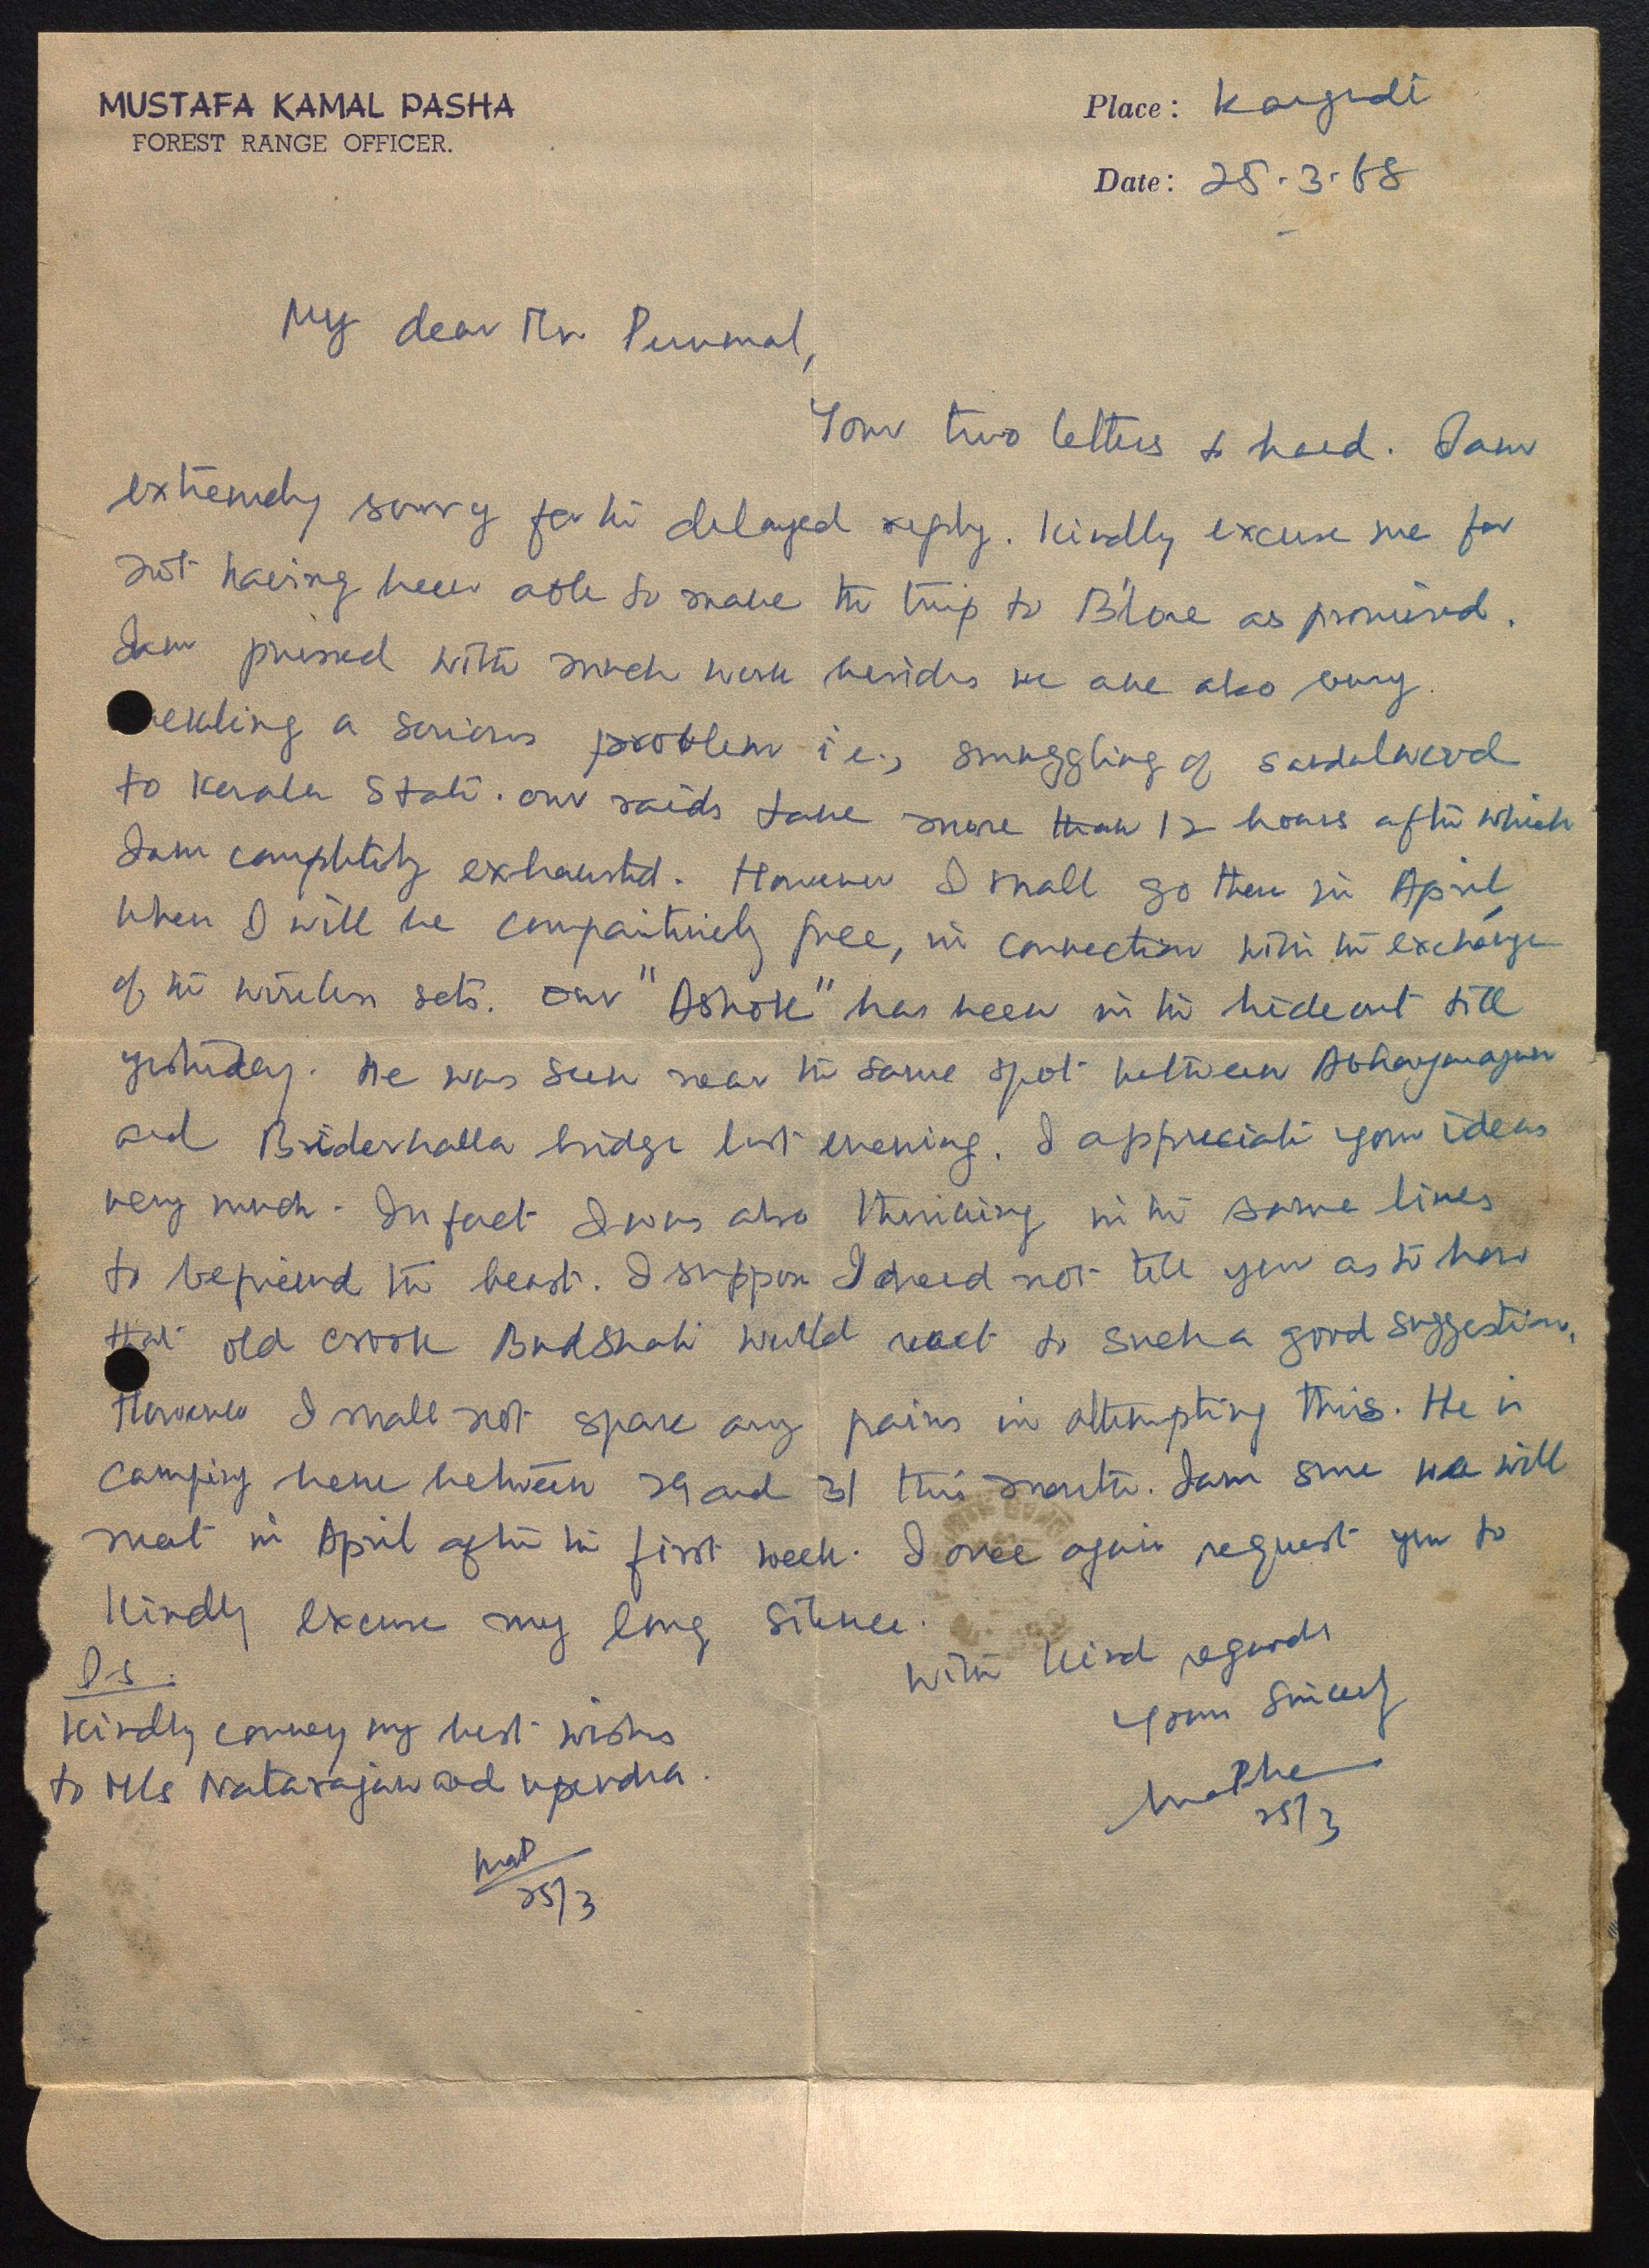 MUSTAFA KAMAL PASHA
FOREST RANGE OFFICER.
Place: Kargudi
Date: 25.3.68
My dear Mr Perumal,
Your two letters to hand. I am
extremely sorry for the delayed reply. Kindly excuse me for
not having been able to make the trip to B'lore as promised.
I am pressed with much work besides we are also busy
a serious problem i.e., smuggling of sandalwood
to Kerala State. our raids take more than 12 hours after which
I am completely exhausted. However I shall go there in April,
when I will be comparitively free, in connection with the exchange
of the wireless sets. our "Ashok" has been in the hideout till
yesterday. He was seen near the same spot between Abhayaranyam
and Biderhalla bridge last evening. I appreciate your ideas
very much. In fact I was also thinking in the same lines
to befriend the beast. I suppose I need not tell you as to how
that old crook Badshah would react to such a good suggestion.
However I shall not spare any pains in attempting this. He is
camping here between 29 and 31 this month. I am sure we will
meet in April after the first week. I once again request you to
kindly excuse my long silence.
With kind regards
Yours Sincerely
25/3
P.S.
Kindly convey my best wishes
to M/s Natarajan and Upendra.
MaP
25/3